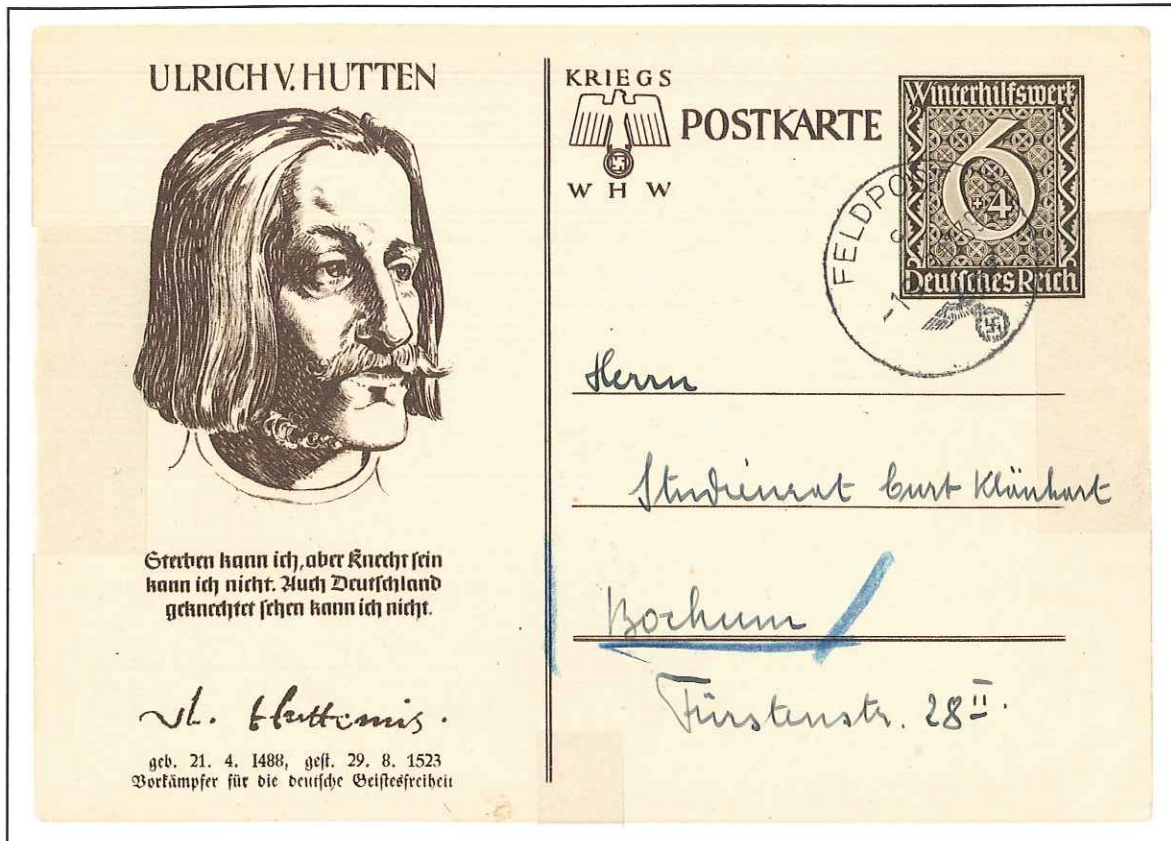 ULRICH V. HUTTEN
Sterben kann ich, aber Knecht sein
kann ich nicht. Auch Deutschland
geknechtet sehen kann ich nicht.
geb. 21. 4. 1488, gest. 29. 8. 1523
Vorkämpfer für die deutsche Geistesfreiheit
KRIEGS
W H W
POSTKARTE
Winterhilfswerk
6
+4
Deutsches Reich
FELDPOST
Herrn
Studienrat Curt
Bochum
Fürstenstr. 28 II.